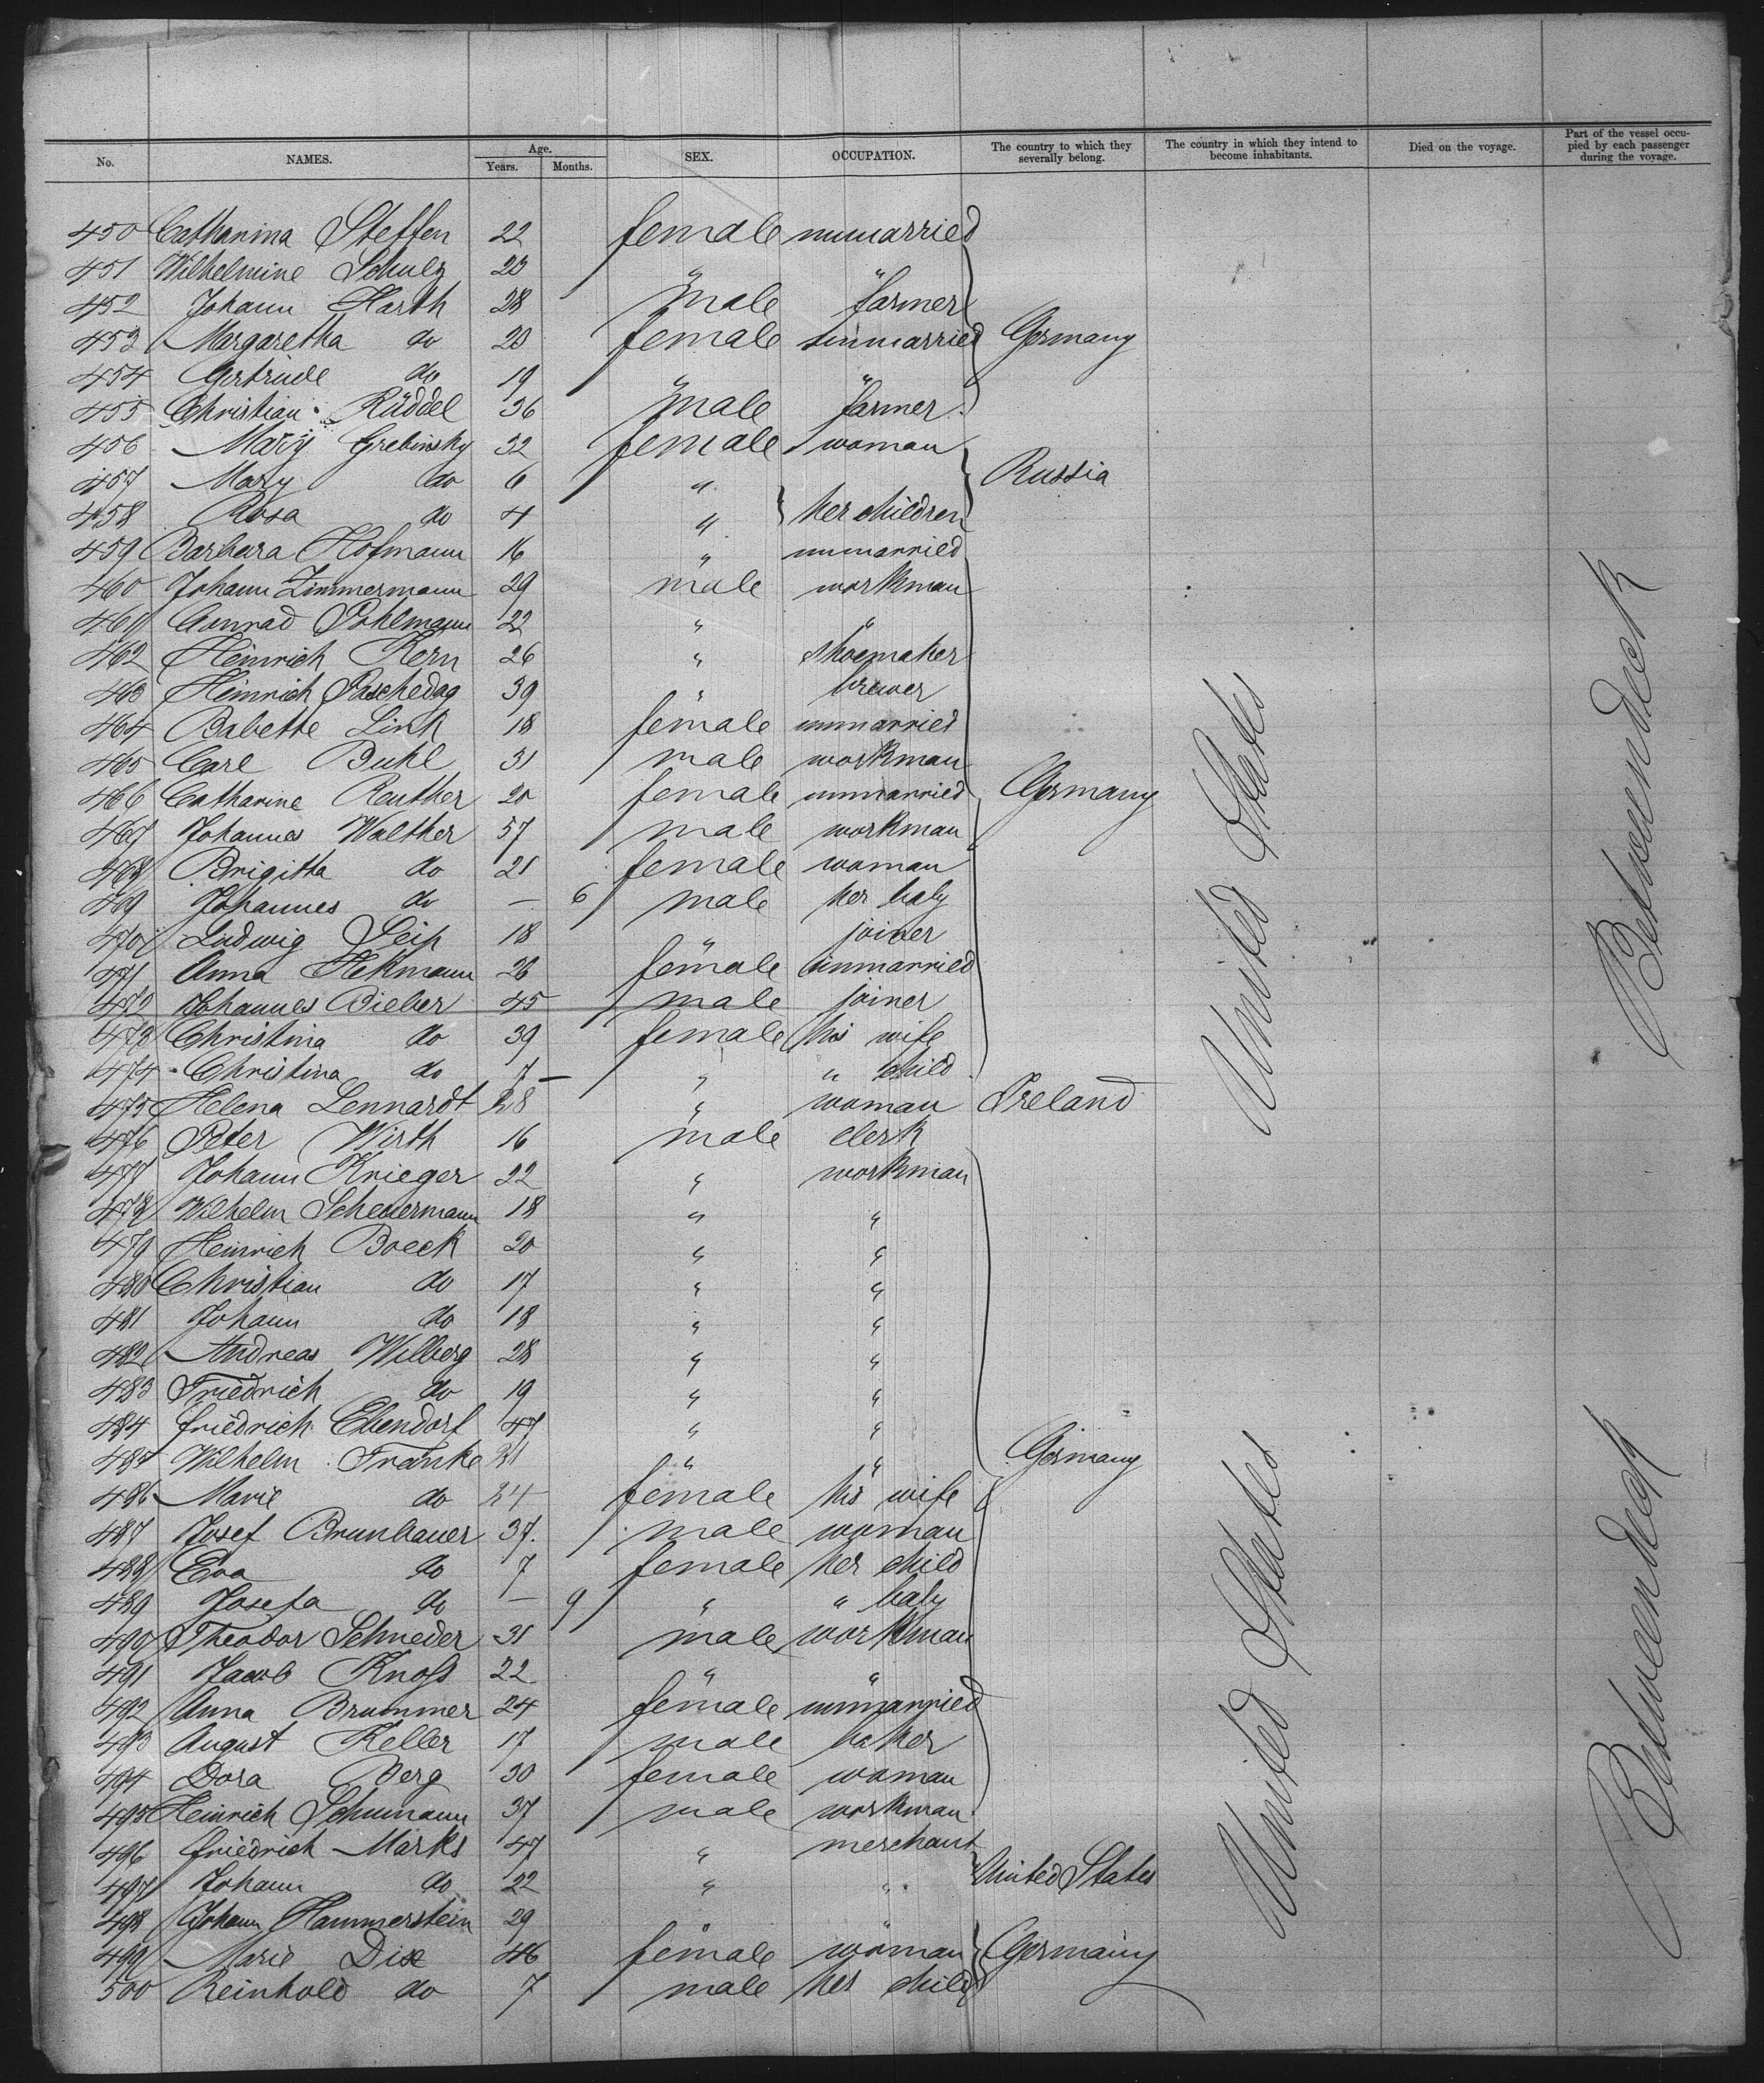 No. NAMES. Age. Years. Months. SEX. OCCUPATION. The country to which they severally belong. The country in which they intend to become inhabitants. Died on the voyage. Part of the vessel occupied by each passenger during the voyage.
450 Catharina Steffen 22 female unmarried
451 Wilhelmine Schulz 23 " "
452 Johann Harth 28 male farmer
453 Margaretha do 20 female unmarried Germany
454 Gertrude do 19 " "
455 Christian Rüddel 36 male farmer
456 Mary Grebinsky 32 female woman
457 Mary do 6 " Russia
458 Rosa do 4 " her children
459 Barbara Hofmann 16 " unmarried
460 Johann Zimmermann 29 male workman
461 Conrad Pohlmann 22 " "
462 Heinrich Kern 26 " shoemaker
463 Heinrich Paschedag 39 " brewer
464 Babette Link 18 female unmarried
465 Carl Buhl 31 male workman
466 Catharine Reuther 20 female unmarried Germany
467 Johannes Walther 57 male workman
468 Brigitta do 21 female woman
469 Johannes do – 6 male her baby
470 Ludwig Seip 18 " joiner
471 Anna Hekmann 26 female unmarried
472 Johannes Bieber 45 male joiner
473 Christina do 39 female his wife
474 Christina do 7 " " child
475 Helena Lennardt 28 " woman Ireland
476 Peter Wirth 16 male clerk
477 Johann Krieger 22 " workman
478 Wilhelm Scheuermann 18 " "
479 Heinrich Boeck 20 " "
480 Christian do 17 " "
481 Johann do 18 " "
482 Andreas Wilberg 28 " "
483 Friedrich do 19 " "
484 Friedrich Ebendorf 47 " "
485 Wilhelm Franke 21 " " Germany
486 Marie do 24 female his wife
487 Josef Brunbauer 37 male woman
488 Eva do 7 female her child
489 Josefa do – 9 " " baby
490 Theodor Schneder 31 male workman
491 Jacob Knoss 22 " "
492 Anna Brummer 24 female unmarried
493 August Keller 17 male baker
494 Dora Berg 30 female woman
495 Heinrich Schumann 37 male workman
496 Friedrich Marks 47 " merchant
497 Johann do 22 " " United States
498 Johann Hammerstein 29 " "
499 Marie Dix 46 female woman Germany
500 Reinhold do 7 male her child
United States
United States
Betweendeck
Betweendeck